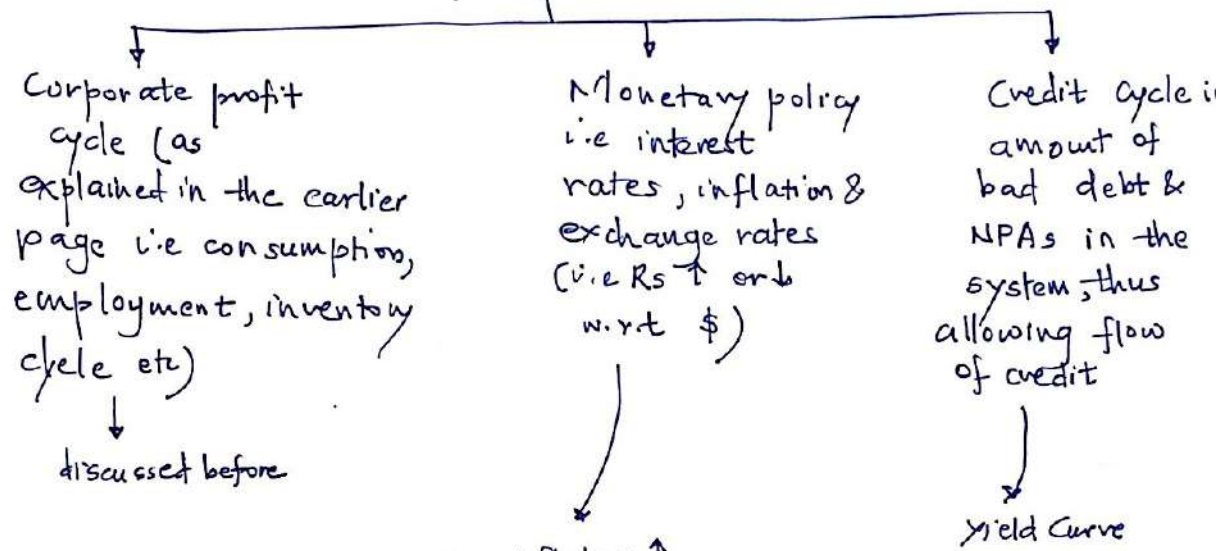 Corporate profit
cycle (as
explained in the earlier
page i.e consumption,
employment, inventory
cycle etc)
discussed before
Monetary policy
i.e interest
rates, inflation &
exchange rates
(i.e Rs ↑ or ↓
w.r.t $)
Credit Cycle i
amount of
bad debt &
NPAs in the
system, thus
allowing flow
of credit
Yield Curve